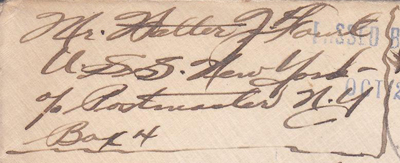 Mr. Walter J
U.S.S. New York -
c/o Postmaster N.Y
Box 4
PASSED B
OCT 2